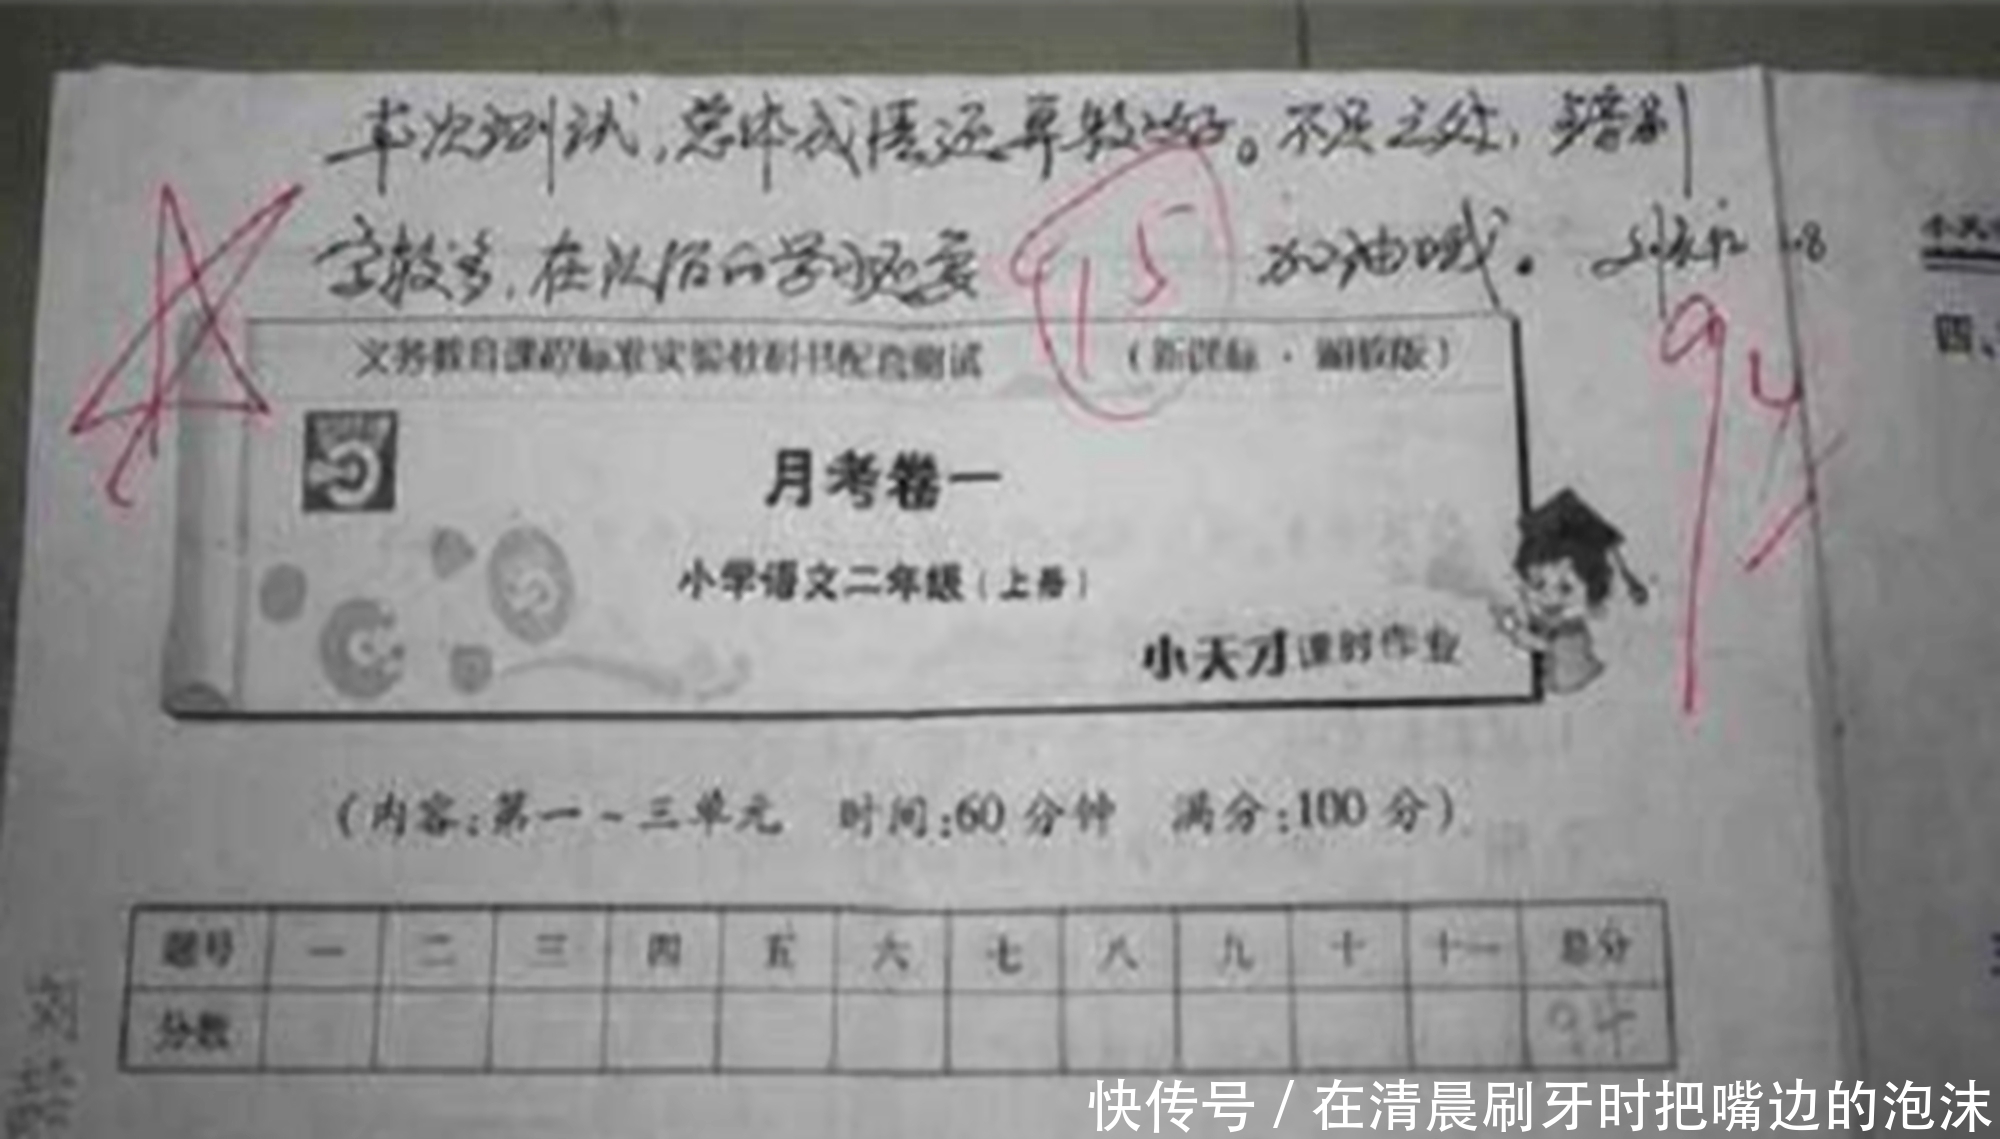 本次测试,总体成绩还算较好。不足之处,多错别
字较多,在以后的学习还要 15 加油哦.
94
义务教育课程标准实验教科书配套测试 (新课标·湘教版)
月考卷一
小学语文二年级(上册)
小天才课时作业
(内容:第一~三单元 时间:60分钟 满分:100分)
题号 一 二 三 四 五 六 七 八 九 十 十一 总分
分数 94
四、
快传号/在清晨刷牙时把嘴边的泡沫